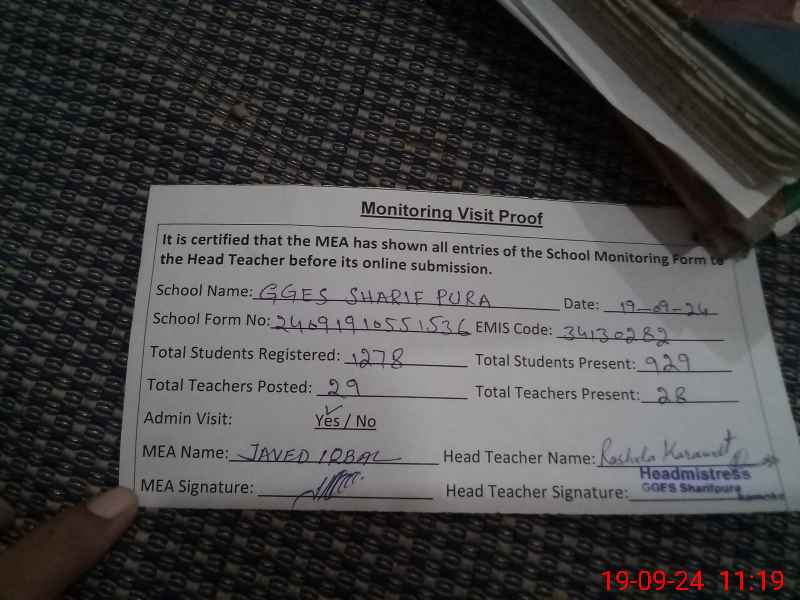 Monitoring Visit Proof
It is certified that the MEA has shown all entries of the School Monitoring Form to
the Head Teacher before its online submission.
School Name: GGES SHARIF PURA Date: 19-09-24
School Form No: 24091910551536 EMIS Code: 34130282
Total Students Registered: 1278 Total Students Present: 929
Total Teachers Posted: 29 Total Teachers Present: 28
Admin Visit: Yes / No
MEA Name: JAVED IQBAL Head Teacher Name: Rashda Karamat
Headmistress
MEA Signature: Head Teacher Signature: GGES Sharifpura
19-09-24 11:19